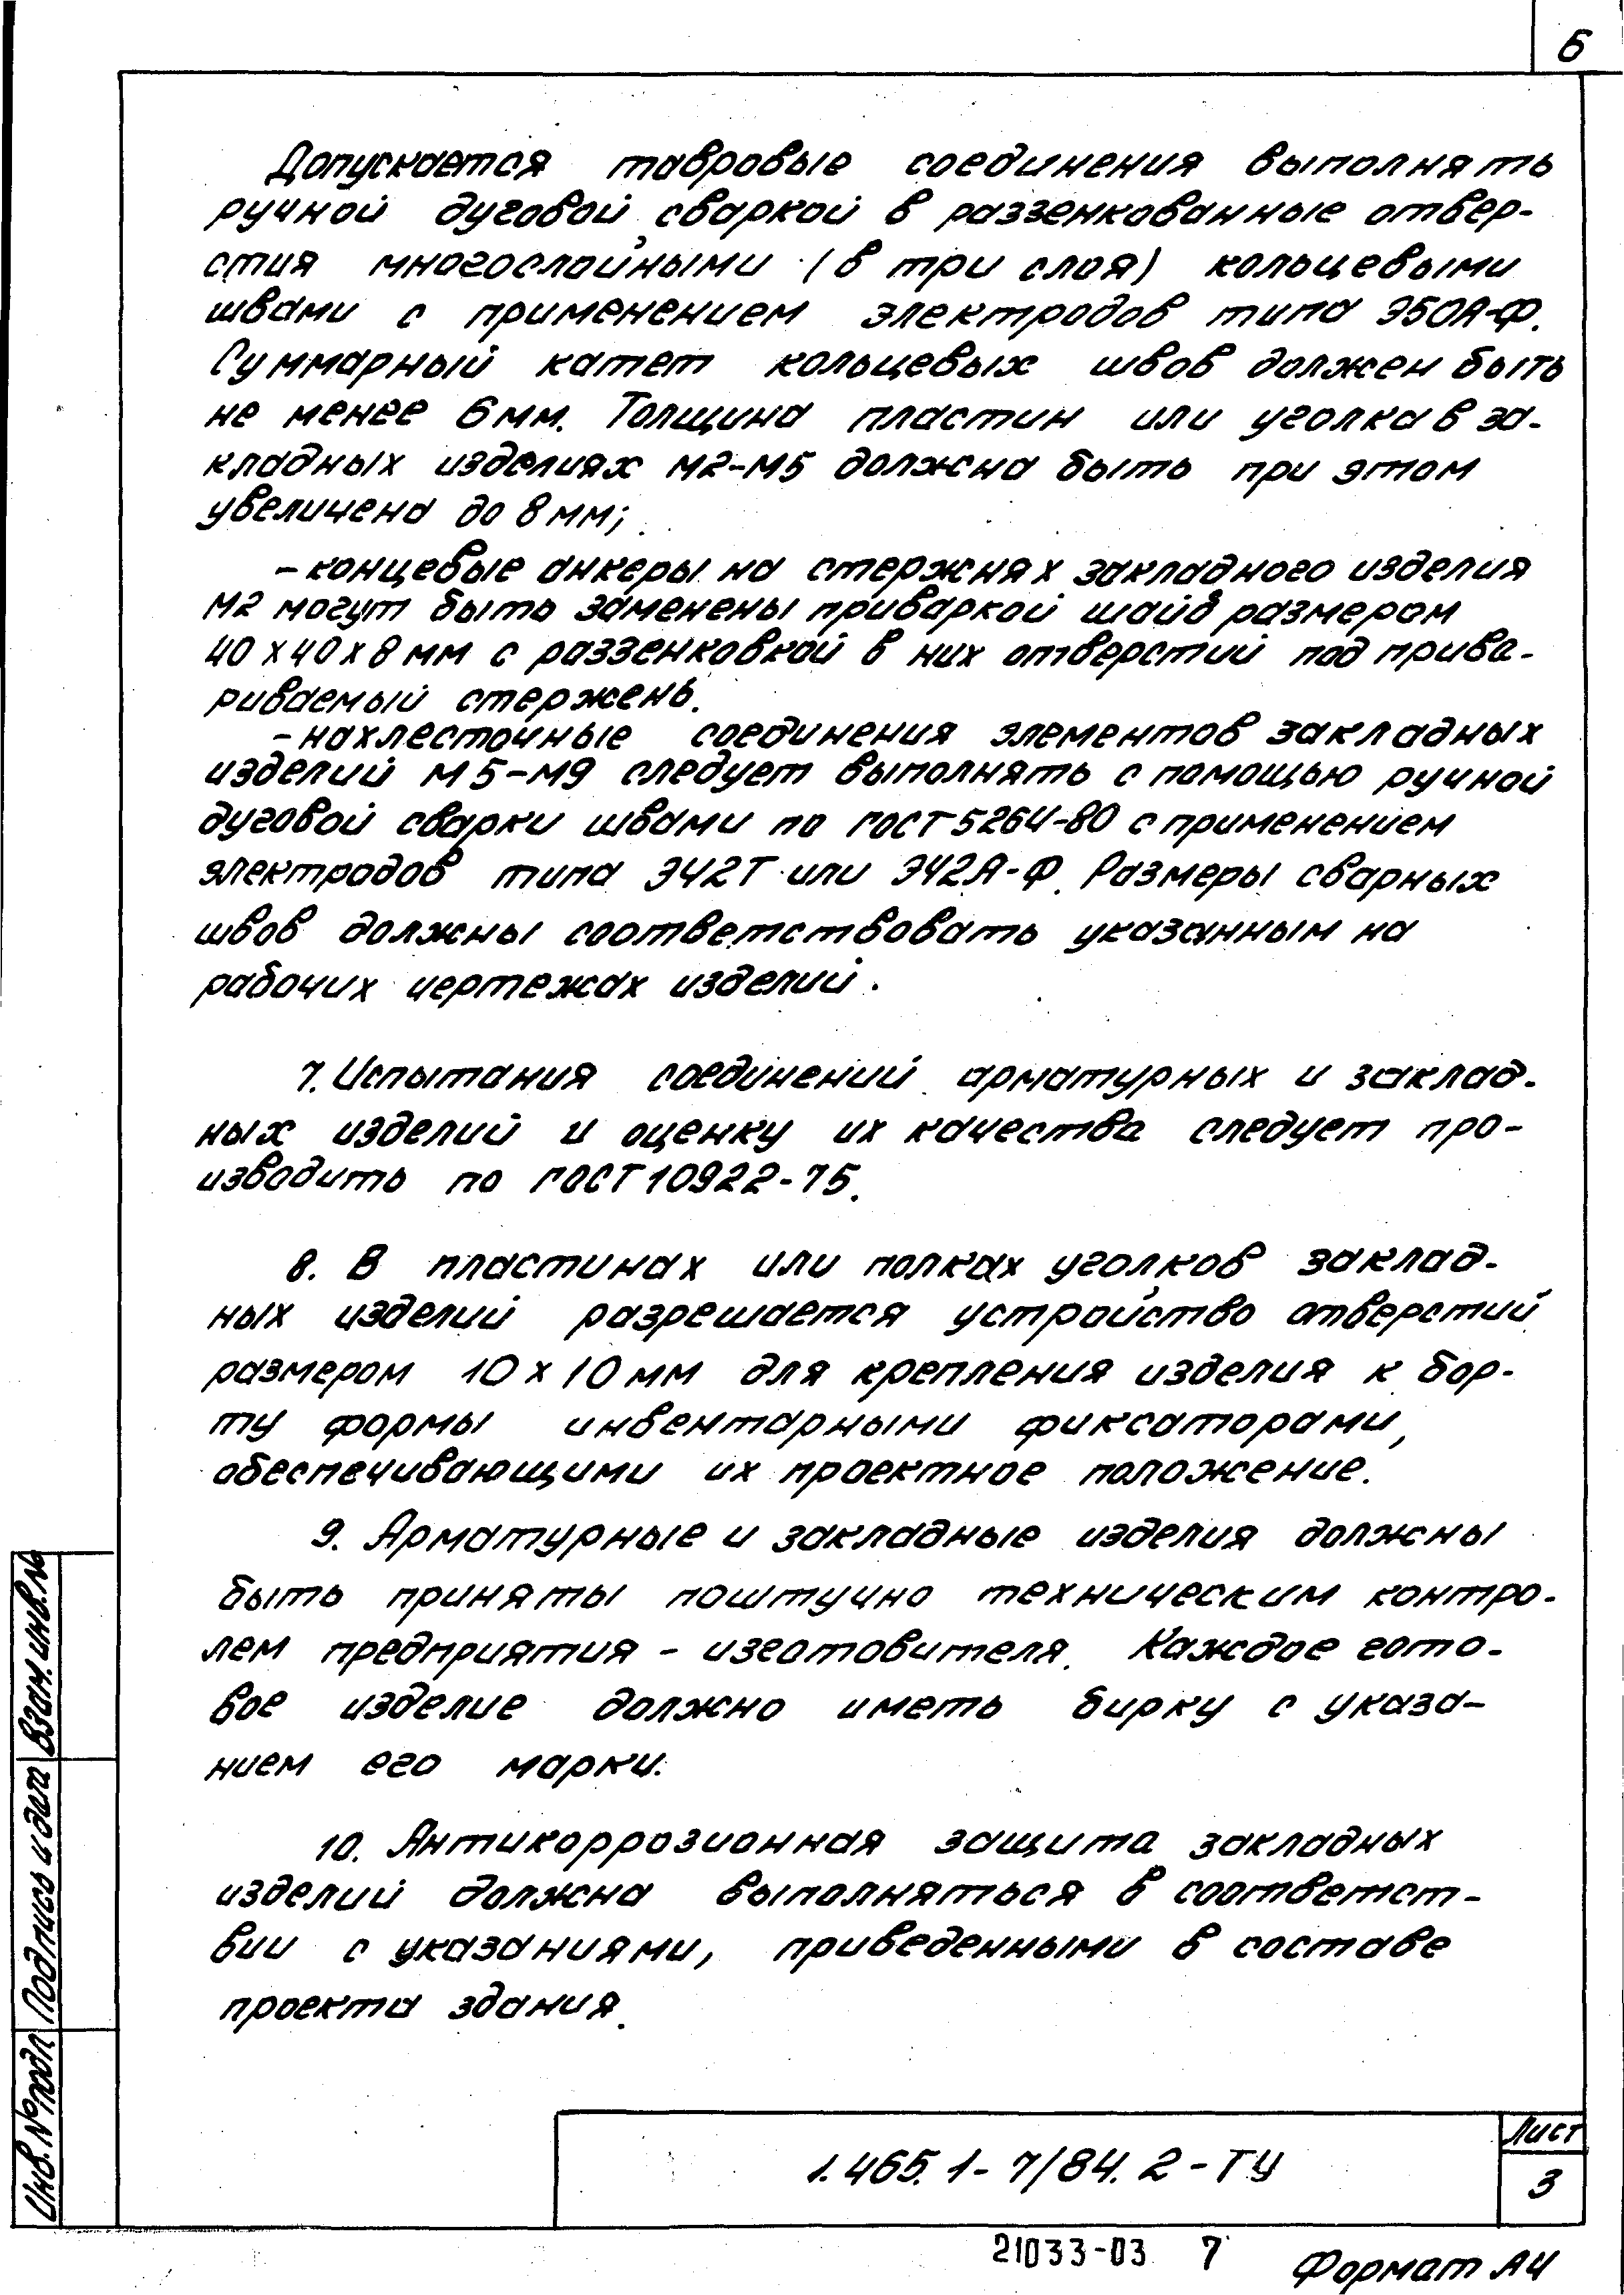 6
Допускается тавровые соединения выполнять
ручной дуговой сваркой в раззенкованные отвер-
стия многослойными (в три слоя) кольцевыми
швами с применением электродов типа Э50А-Ф.
Суммарный катет кольцевых швов должен быть
не менее 6 мм. Толщина пластин или уголка в за-
кладных изделиях М2-М5 должна быть при этом
увеличена до 8 мм;
- концевые анкеры на стержнях закладного изделия
М2 могут быть заменены приваркой шайб размером
40х40х8 мм с раззенковкой в них отверстий под прива-
риваемый стержень.
- нахлесточные соединения элементов закладных
изделий М5-М9 следует выполнять с помощью ручной
дуговой сварки швами по ГОСТ 5264-80 с применением
электродов типа Э42Т или Э42А-Ф. Размеры сварных
швов должны соответствовать указанным на
рабочих чертежах изделий.
7. Испытания соединений арматурных и заклад-
ных изделий и оценку их качества следует про-
изводить по ГОСТ 10922-75.
8. В пластинах или полках уголков заклад-
ных изделий разрешается устройство отверстий
размером 10х10 мм для крепления изделия к бор-
ту формы инвентарными фиксаторами,
обеспечивающими их проектное положение.
9. Арматурные и закладные изделия должны
быть приняты поштучно техническим контро-
лем предприятия - изготовителя. Каждое гото-
вое изделие должно иметь бирку с указа-
нием его марки.
10. Антикоррозионная защита закладных
изделий должна выполняться в соответст-
вии с указаниями, приведенными в составе
проекта здания.
Взам. инв. №
Подпись и дата
Инв. № подл
1.465.1-7/84.2-ТУ
Лист
3
21033-03 7
Формат А4